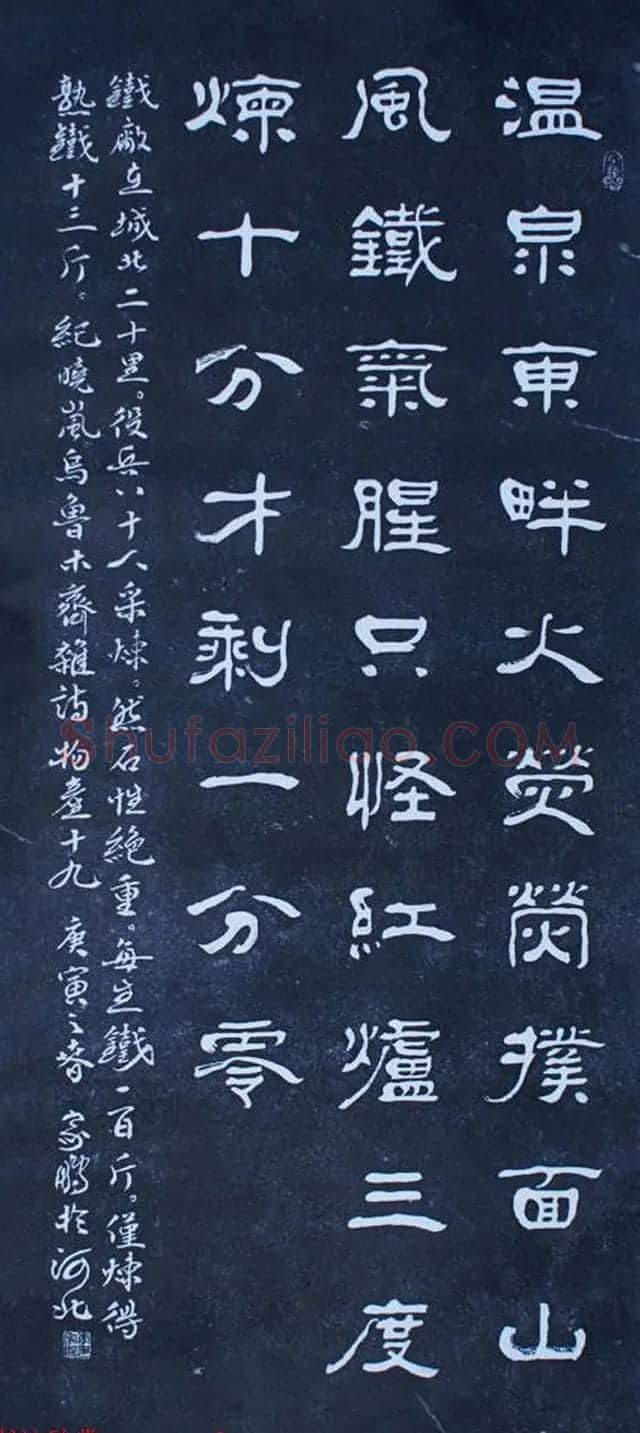 温泉東畔火熒熒撲面山
風鐵氣腥只怪紅爐三度
煉十分才剩一分零
鐵廠在城北二十里。役兵八十人采煉。然石性絶重。每生鐵一百斤。僅煉得
熟鐵十三斤。紀曉嵐烏魯木齊雜詩物產十九 庚寅之春 家鵬於河北
Shufaziliao.COM